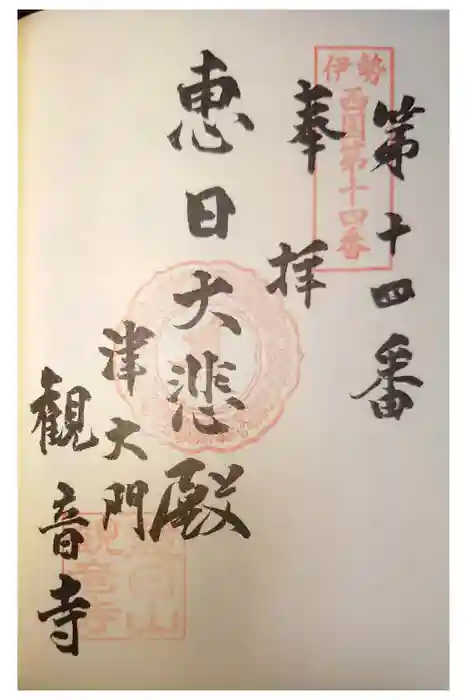 第十四番
伊勢
西国第十四番
奉拝
恵日大悲殿
津大門
観音寺
恵日山
観音寺